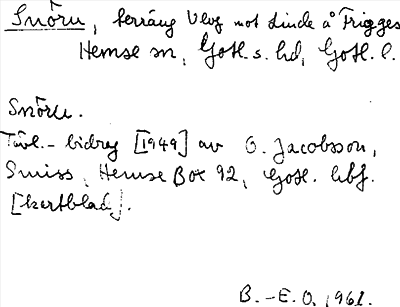 Snöru, terräng Ulvg mot Linde å Frigges
Hemse sn, Gotl. s. hd, Gotl. l.
Snöru.
Tävl.-bidrag [1949] av O. Jacobsson,
Smiss, Hemse Box 92, Gotl.
[kartblad].
B.-E. O. 1961.